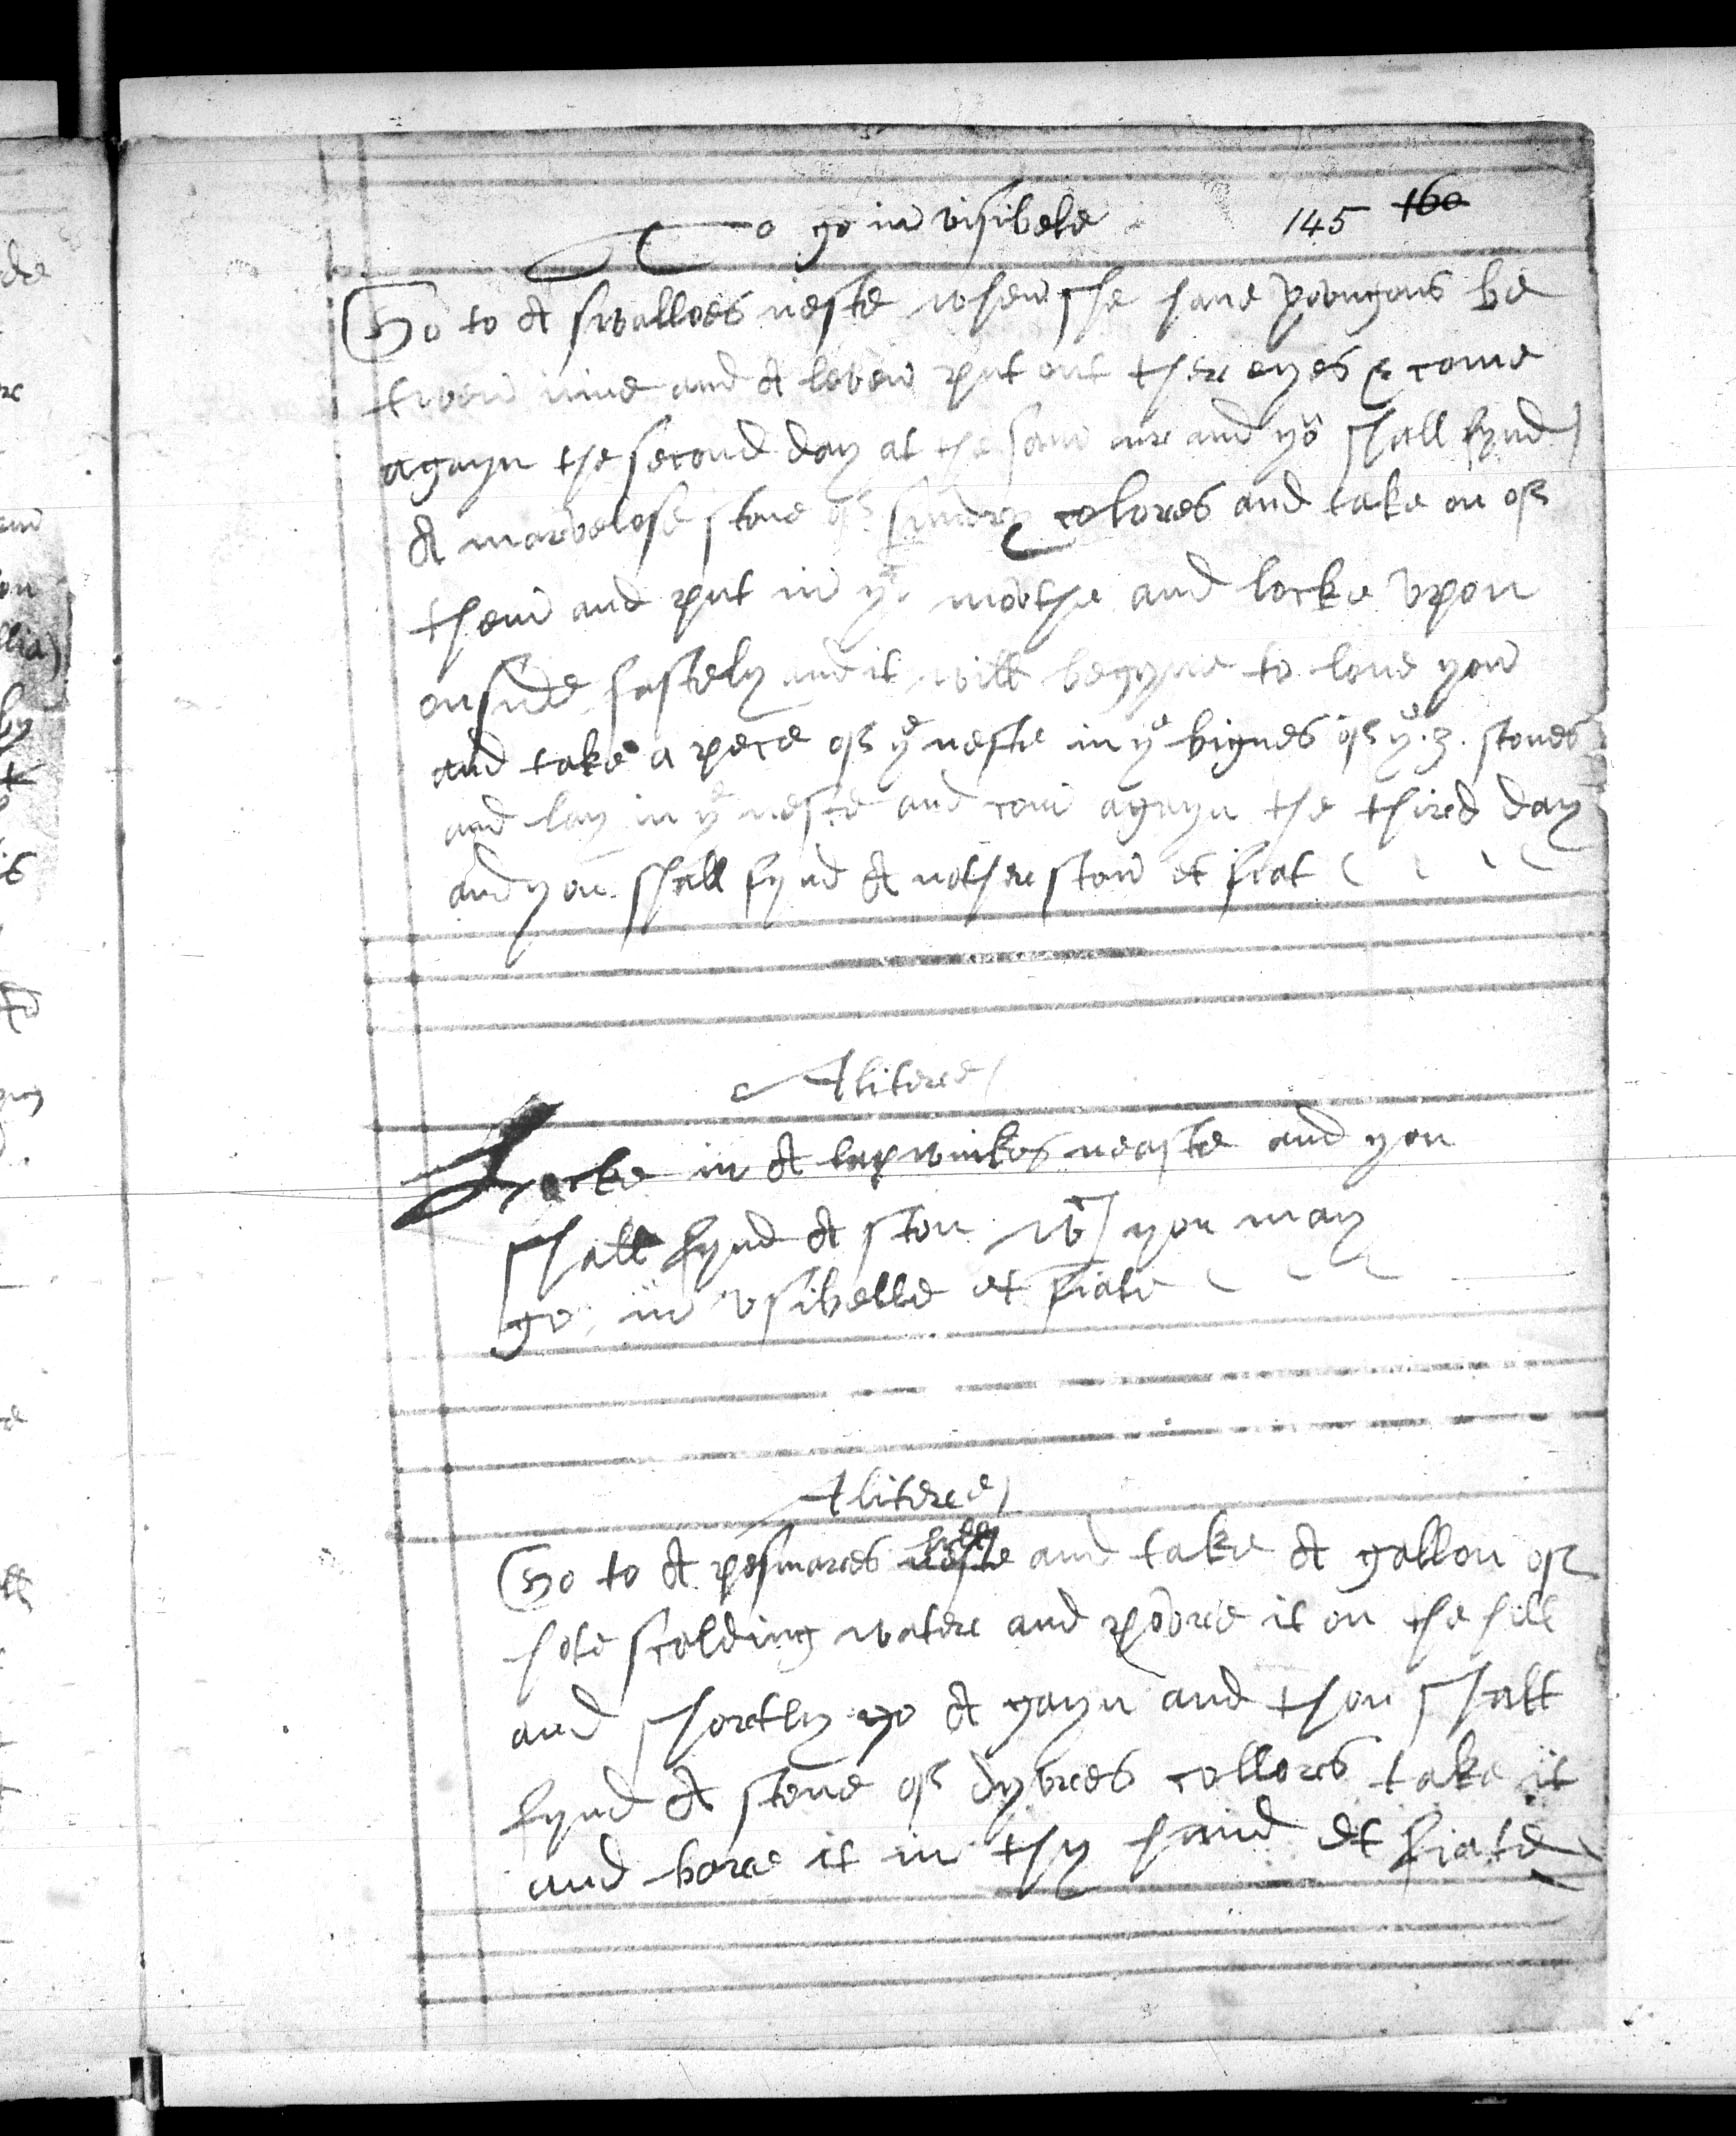 To go in visibele
145 160
Go to A swalloes neste when she haue yoongons be
twen nine and A leven put out there eyes & come
agayn the second day at the sam ure and yo shall fynd
A marvelose stone of sundry colores and take on of
them and put in yr mothe and locke vpon
on fastely and it will begynne to loue you
and take a pece of ye neste in ye bignes of ye .3. stones
and lay in ye neste and com agayn the third day
and you shall fynd A nother ston et fiat
Alitere
Locke in A lapwinkes neaste and you
shall fynd A ston wth you may
go in vsibelle et fiate
Alitere
hill
Go to A pesmares neste and take A gallon of
hote scolding water and poore it on the hill
and shortly go A gayn and thou shalt
fynd A stone of dyvres collores take it
and bore it in thy hand et fiate